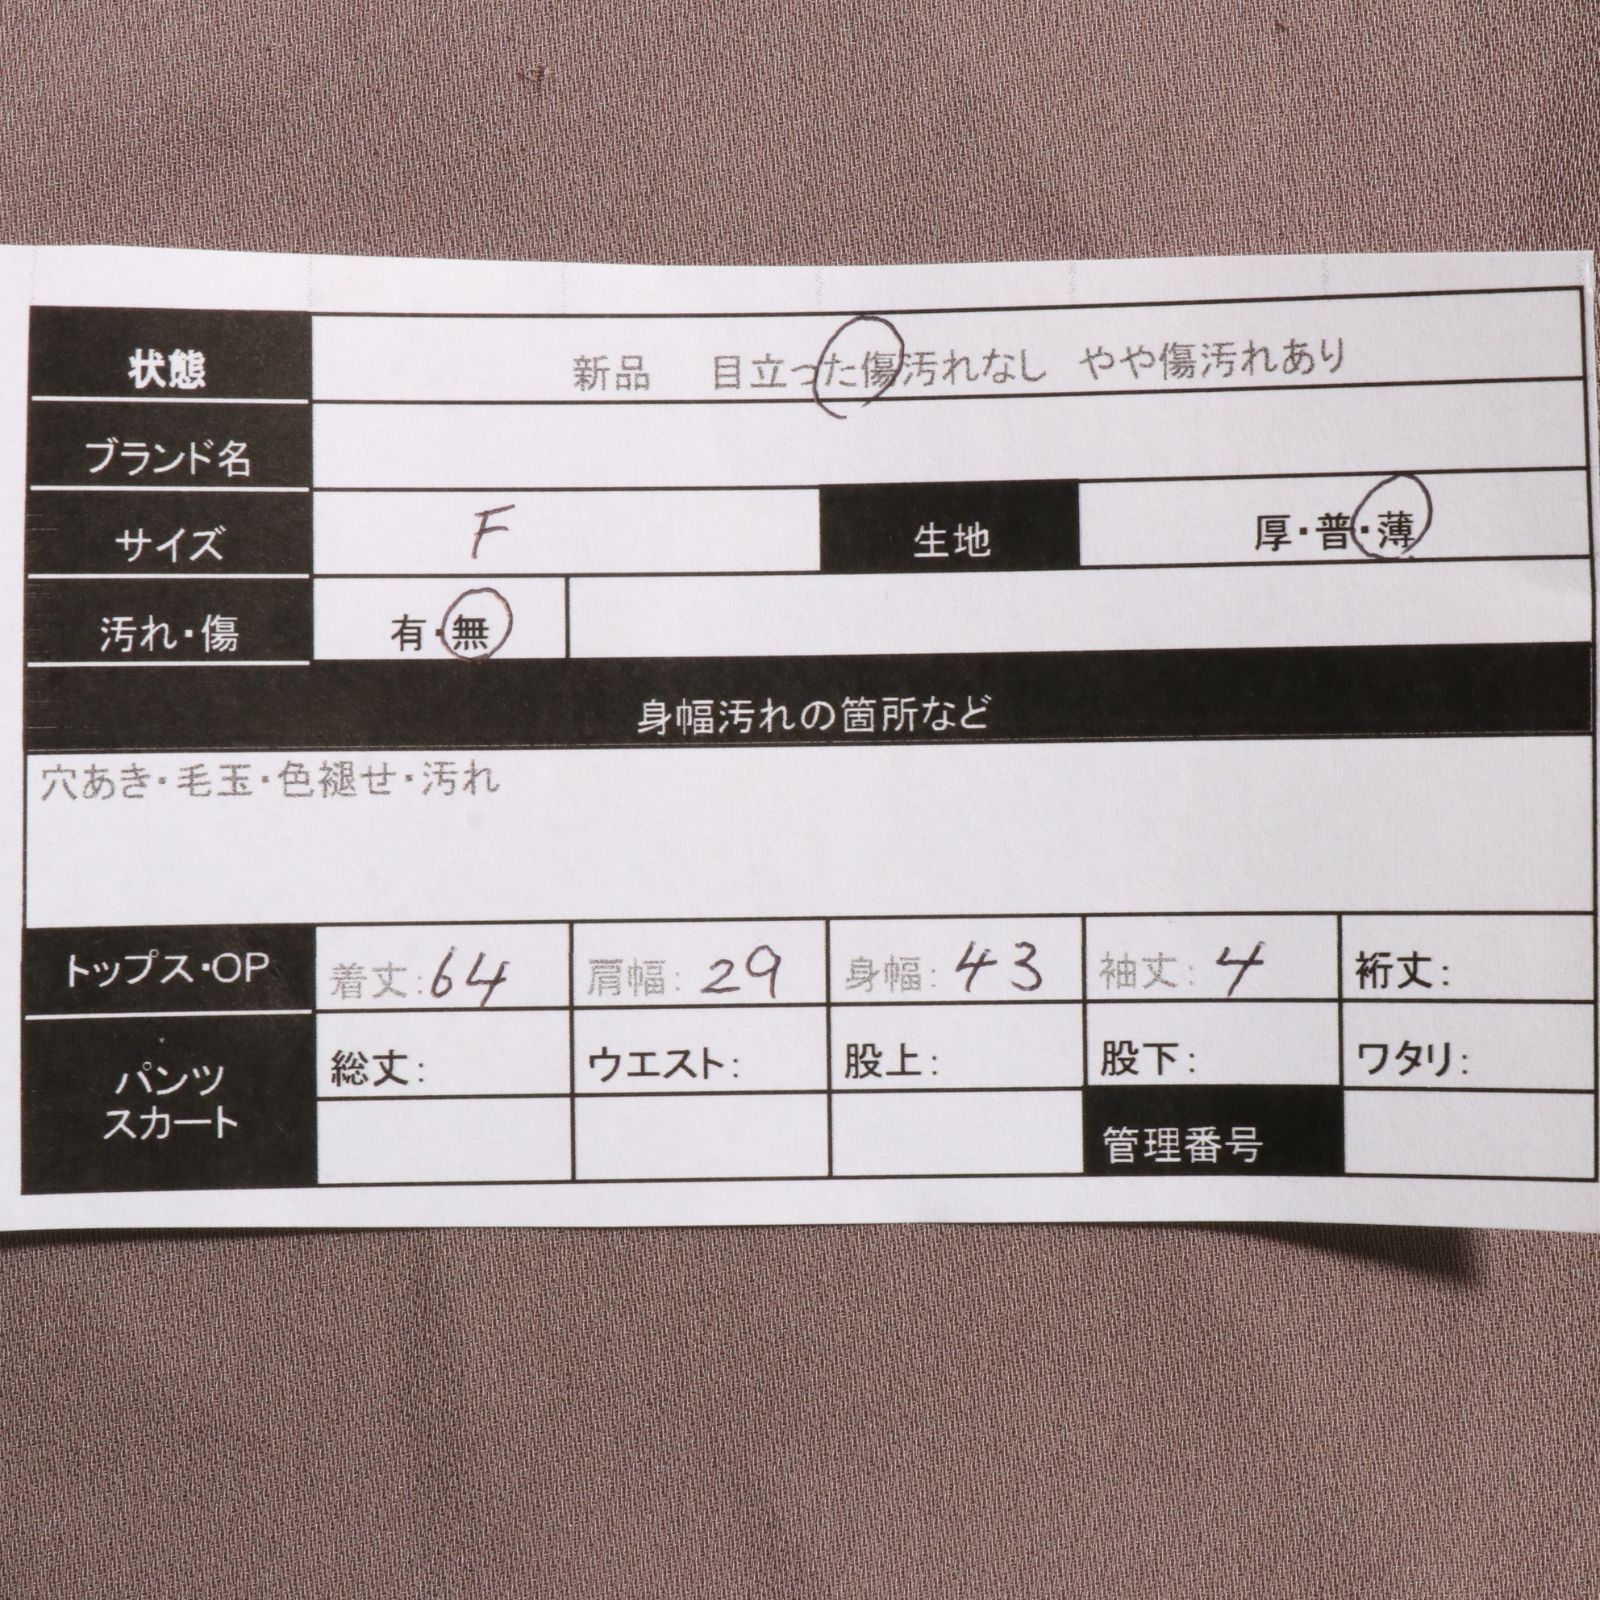 状態 新品 目立った傷汚れなし やや傷汚れあり
ブランド名
サイズ F 生地 厚・普・薄
汚れ・傷 有・無
身幅汚れの箇所など
穴あき・毛玉・色褪せ・汚れ
トップス・OP 着丈:64 肩幅:29 身幅:43 袖丈:4 裄丈:
パンツ
スカート
総丈: ウエスト: 股上: 股下: ワタリ:
管理番号